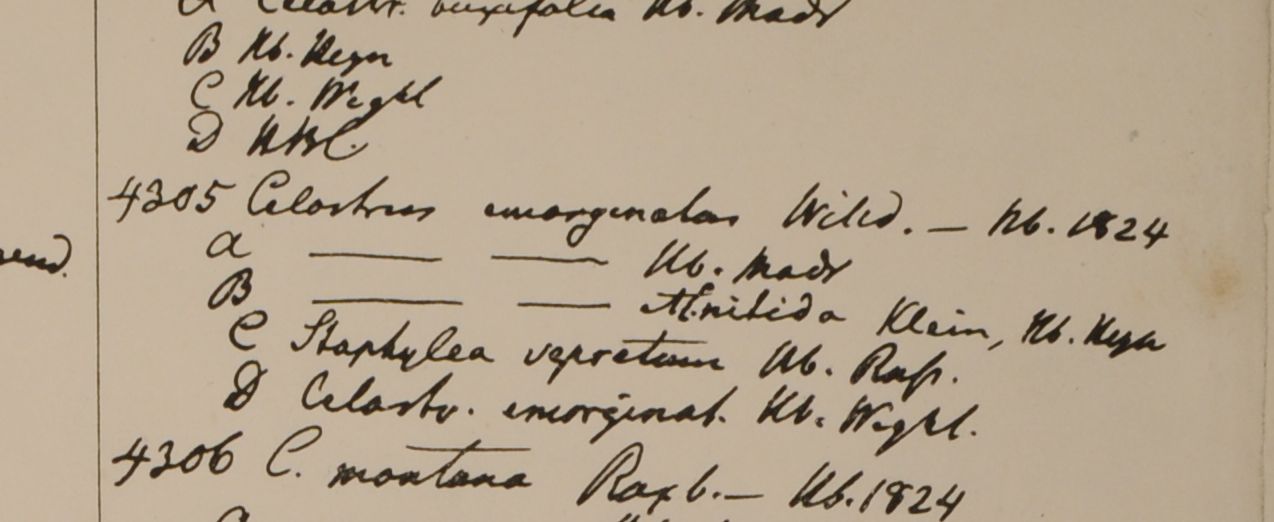 a Celastr. buxifolia Hb. Madr
B Hb. Heyn
C Hb. Wight
D HBC.
4305 Celastrus emarginatus Willd. — Hb. 1824
a — — Hb. Madr
B — — nitida Klein, Hb. Heyn
C Staphylea vepretum Hb.
D Celastr. emarginat. Hb. Wight.
4306 C. montana Roxb. — Hb. 1824